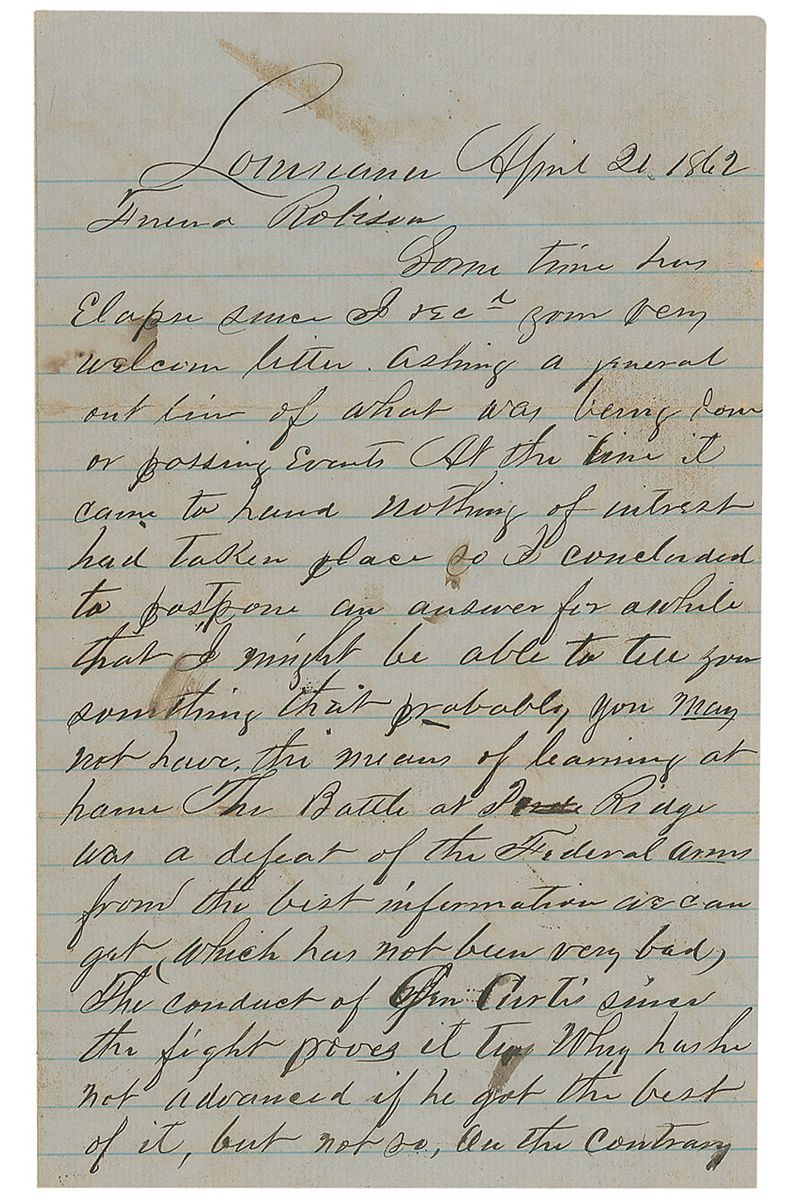 Louisiana April 21 1862
Friend Robison
Some time has
Elapse since I recd your very
welcom letter. asking a general
out line of what was being done
or passing Events At the time it
came to hand nothing of intrest
had taken place so I concluded
to postpone an answer for awhile
that I might be able to tell you
something that probably you may
not have, the means of learning at
home The Battle at Ridge
was a defeat of the Federal arms
from the best information we can
get (which has not been very bad)
The conduct of Gen Curtis since
the fight proves it to Why has he
not advanced if he got the best
of it, but not so, On the contrary